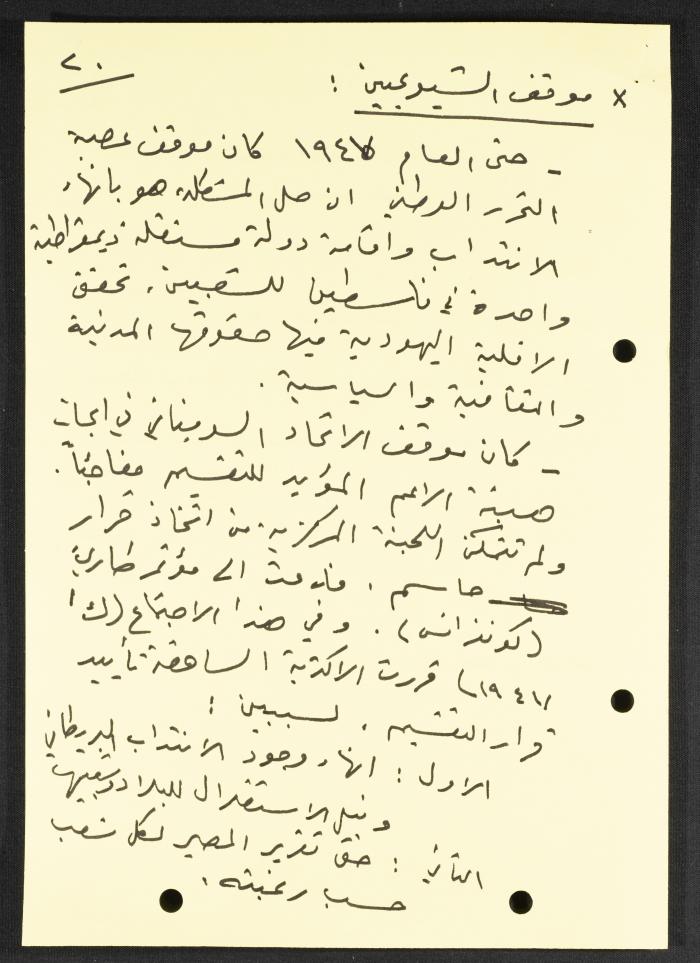 ٢٠
x موقف الشيوعيين :
ـ حتى العام ١٩٤٧ كان موقف عصبة
التحرر الوطني ان حل المشكلة هو بانهاء
الانتداب واقامة دولة مستقلة ديمقراطية
واحدة في فلسطين للشعبين، تحقق
الاقلية اليهودية فيها حقوقها المدنية
والثقافية والسياسية .
ـ كان موقف الاتحاد السوفياتي في ابحاث
هيئة الامم المؤيد للتقسيم مفاجئاً .
ولم تتمكن اللجنة المركزية من اتخاذ قرار
حاسم . فادعت الى مؤتمر طارئ
(كونفرانس) . وفي هذا الاجتماع (ك١
١٩٤٧) قررت الاكثرية الساحقة تأييد
قرار التقسيم . لسببين :
الاول : انهاء وجود الانتداب البريطاني
ونيل الاستقلال للبلاد وشعبيها
الثاني : حق تقرير المصير لكل شعب
حسب رغبته .